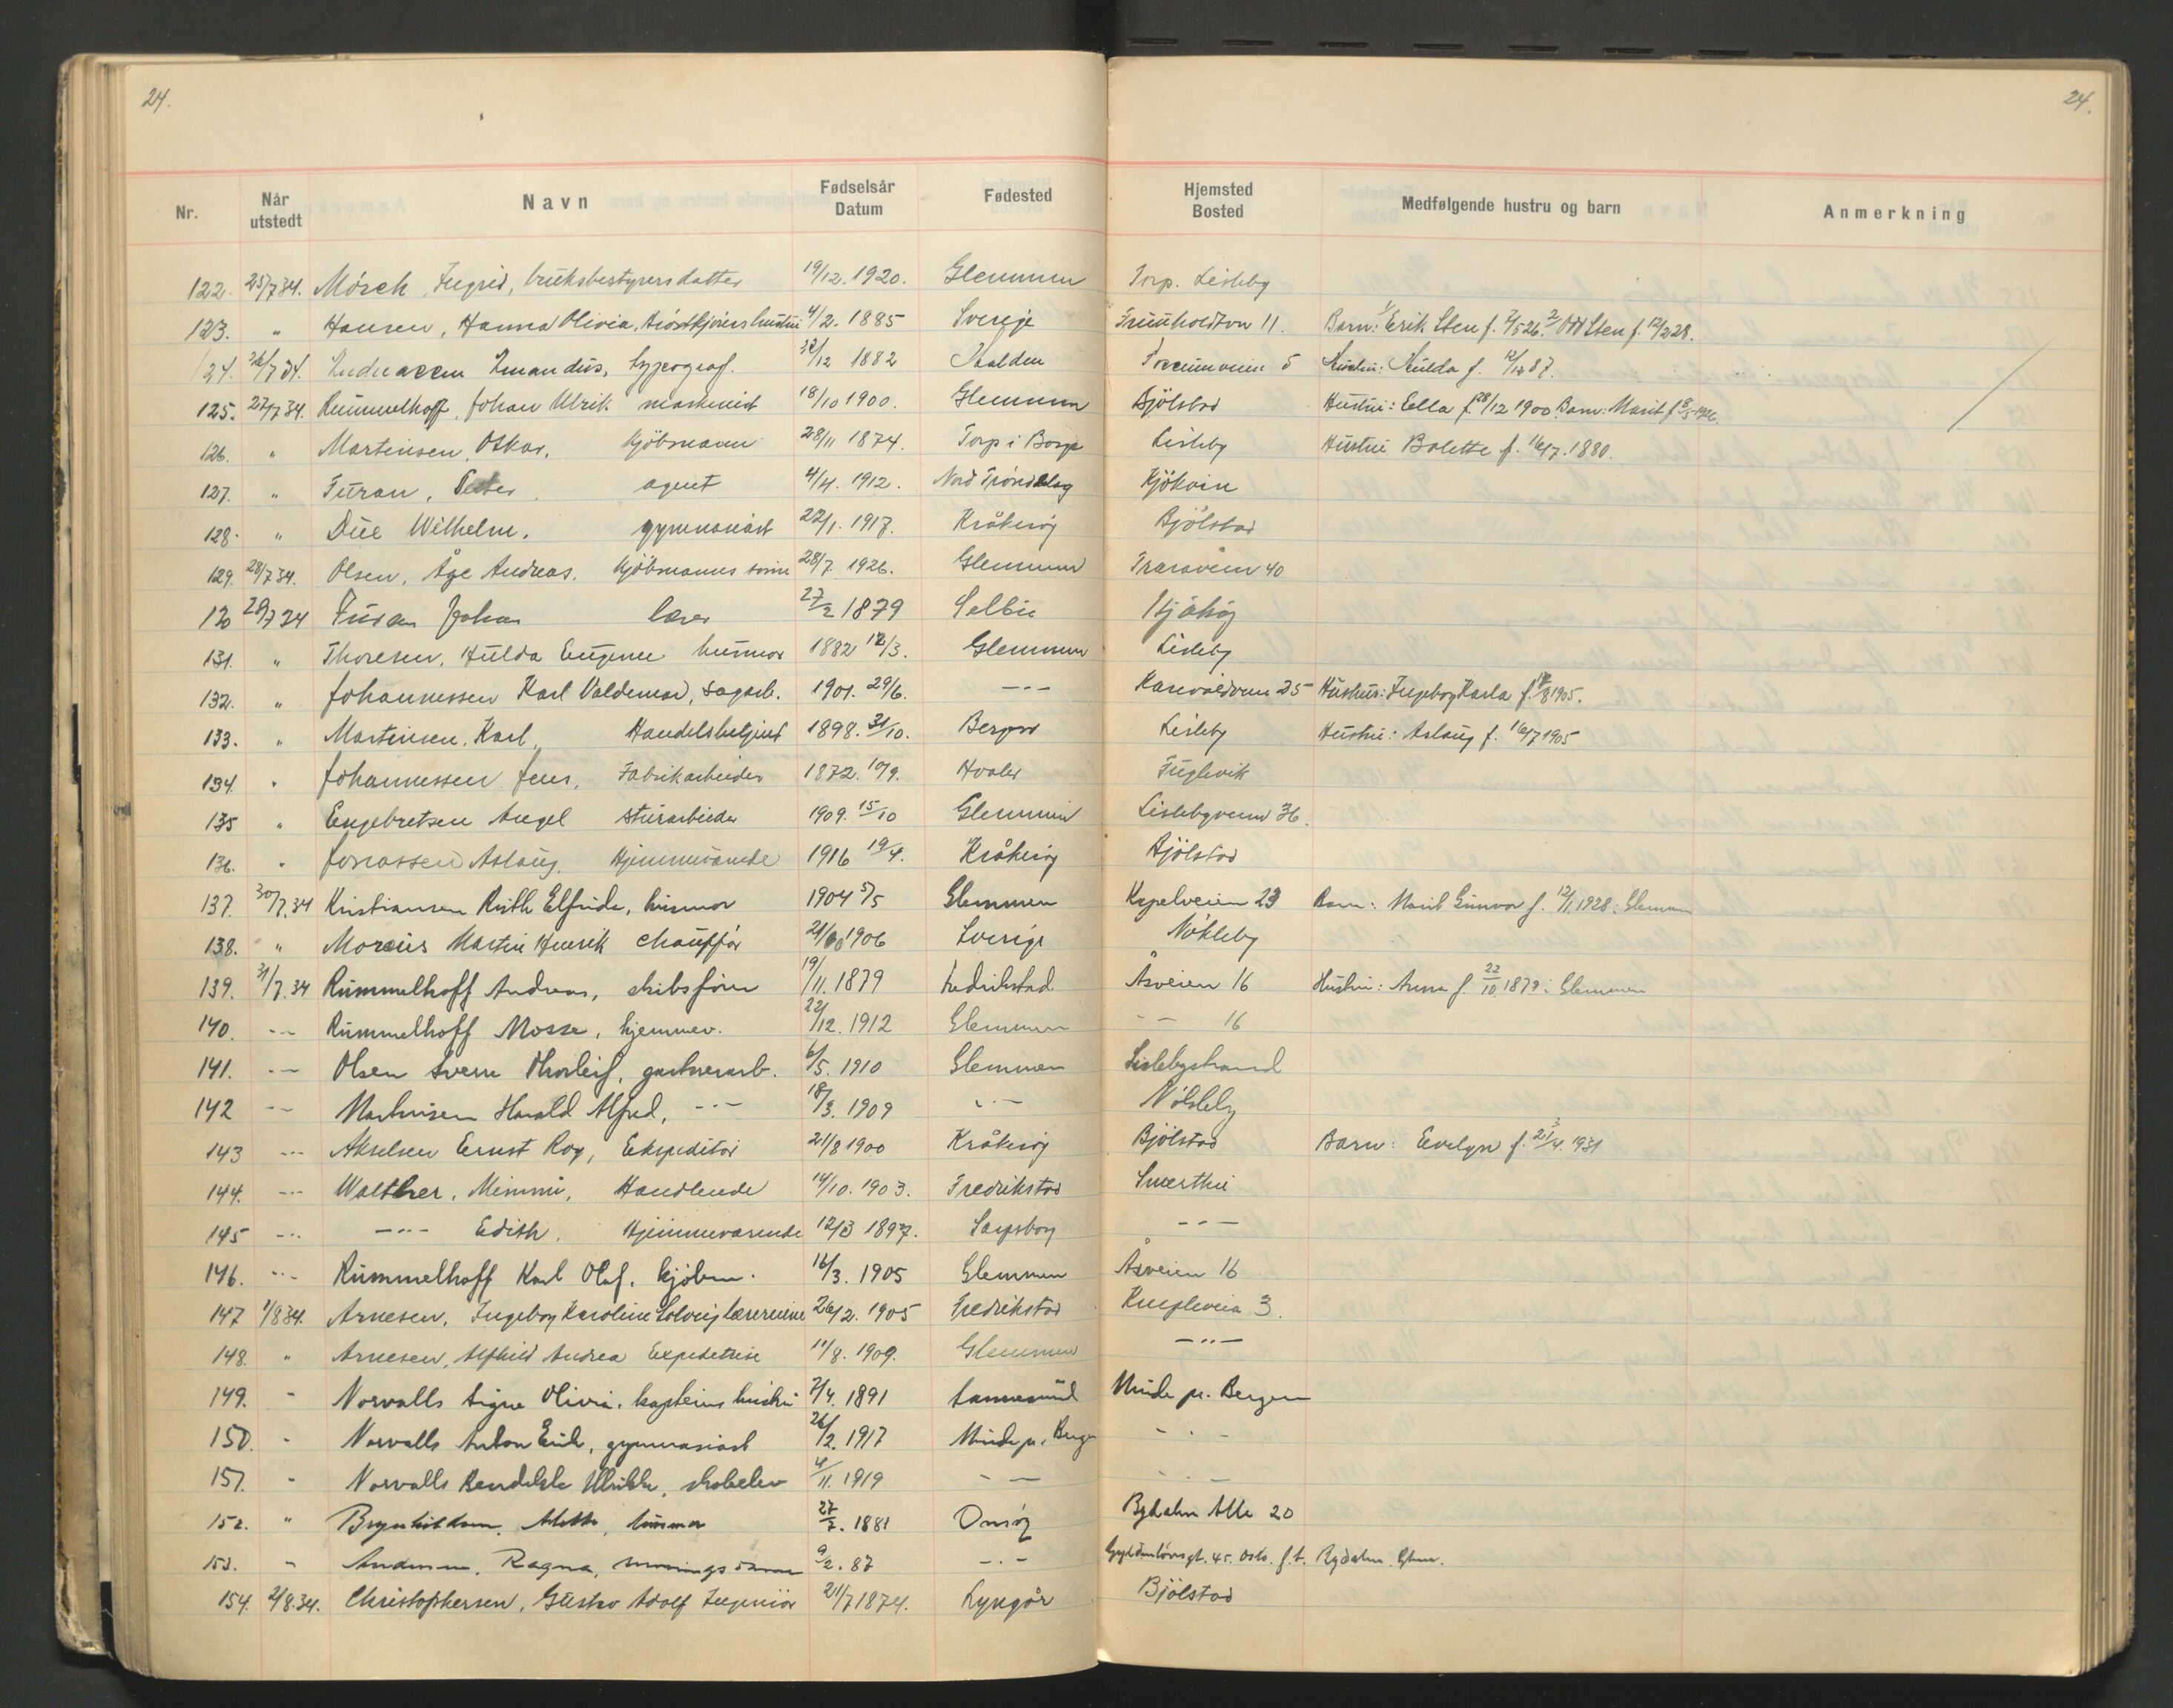 24.
24.
Nr. Når utstedt Navn Fødselsår Datum Fødested Hjemsted Bosted Medfølgende hustru og barn Anmerkning
122. 25/7 34. Mörch, Ingrid, bruksbestyrersdatter 19/12. 1920. Glemmen Torp. Lisleby
123. " Hansen, Hanna Olivia, hustru 4/2. 1885 Sverige 11. Barn: 1/ Erik Sten f. 7/5 26. 2/ Odd Sten f. 12/2 28.
124. 26/7 34. typograf. 12 1882 Halden 5 Hustru: Hulda f. 12/12 87.
125. 27/7 34. Rummelhoff, Johan Ulrik maskinist 18/10 1900. Glemmen Bjölstad Hustru: Ella f. 28/12 1900 Barn: Marit f. 8/5 1926.
126. " Martinsen, Oskar. kjöbmann 28/11 1874. Torp i Borge Lisleby Hustru Bolette f. 16/7. 1880.
127. " Furan, Peter. agent 4/4. 1912. Nord Tröndelag Kjököin
128. " Due Wilhelm. gymnasiast 22/1. 1917. Kråkeröy Bjölstad
129. 28/7 34. Olsen, Åge Andreas. kjöbmanns sönn 28/7. 1926. Glemmen Traraveien 40
130 28/7 34 Furan Johan lærer 27/2 1879 Selbu Kjököy
131. " Thoresen, Hulda Eugenie husmor 1882 12/3. Glemmen Lisleby
132. " Johannessen Karl Valdemar, sagarb. 1901. 29/6. -"- 25 Hustru: Ingeborg Karla f. 8 1905.
133. " Martinsen, Karl, Handelsbetjent 1898. 31/10. Lisleby Hustru: Aslaug f. 16/7 1905
134. " Johannessen Jens, Fabrikarbeider 1872. 10/9. Hvaler Fuglevik
135 " Engebretsen Angel sturarbeider 1909. 15/10 Glemmen Lislebyveien 36.
136. " Jonassen Aslaug, Hjemmeværende 1916 19/4. Kråkeröy Bjölstad
137. 30/7.34 Kristiansen Ruth Elfrida, husmor 1904 5/5 Glemmen Kapelveien 23 Barn: Marit Gunvor f. 12/1. 1928 i Glemmen
138. " Morcus Martin Henrik chaufför 21/10 1906 Sverige Nökleby
139. 31/7.34 Rummelhoff Andreas, skibsförer 19/11. 1879 Fredrikstad Åsveien 16 Hustru: Anna f. 22/10 1879 i Glemmen
140. -"- Rummelhoff Mosse, hjemmev. 22/12. 1912 Glemmen -"- 16
141. -"- Olsen Sverre Thorleif, gartnerarb. 6/5. 1910 Glemmen Lislebystrand
142 -"- Martinsen Harald Alfred, -"- 18/3. 1909 -"- Nökleby
143 -"- Akselsen Ernst Roy, Ekspeditör 21/8 1900 Kråkeröy Bjölstad Barn: Evelyn f. 21/4. 1931
144. -"- Walther, Mimmi, Handlende 14/10. 1903. Fredrikstad Smerthu
145 -"- -"- Edith. Hjemmeværende 12/3 1897. Sarpsborg -"-
146. -"- Rummelhoff Karl Olaf, kjöbm. 16/3. 1905 Glemmen Åsveien 16
147 1/8 34. Arnesen, Ingeborg Karoline Solveig lærerinne 26/2. 1905 Fredrikstad Knipleveien 3.
148. " Arnesen, Alfhild Andrea Expeditrise 11/8. 1909. Glemmen -"-
149. " Norvalls Signe Olivia, kapteins hustru 2/4. 1891 Sannesund Minde pr. Bergen
150. " Norvalls Anton Emil, gymnasiast 26/2. 1917 Minde pr. Bergen -"-
151. " Norvalls Bendikte Ulrikke, skoleelev 4/11. 1919 -"- -"-
152. " Brynhildsen, Alette, husmor 27/7. 1881 Onsöy Rydalen Alle 20
153. " Andersen, Ragna, 9/2. 87 -"- Gyldenlövsgt. 45. Oslo. f.t. Rydalen Glem.
154. 2/8.34. Christophersen, Gustav Adolf Ingeniör 21/7 1874. Lyngör Bjölstad